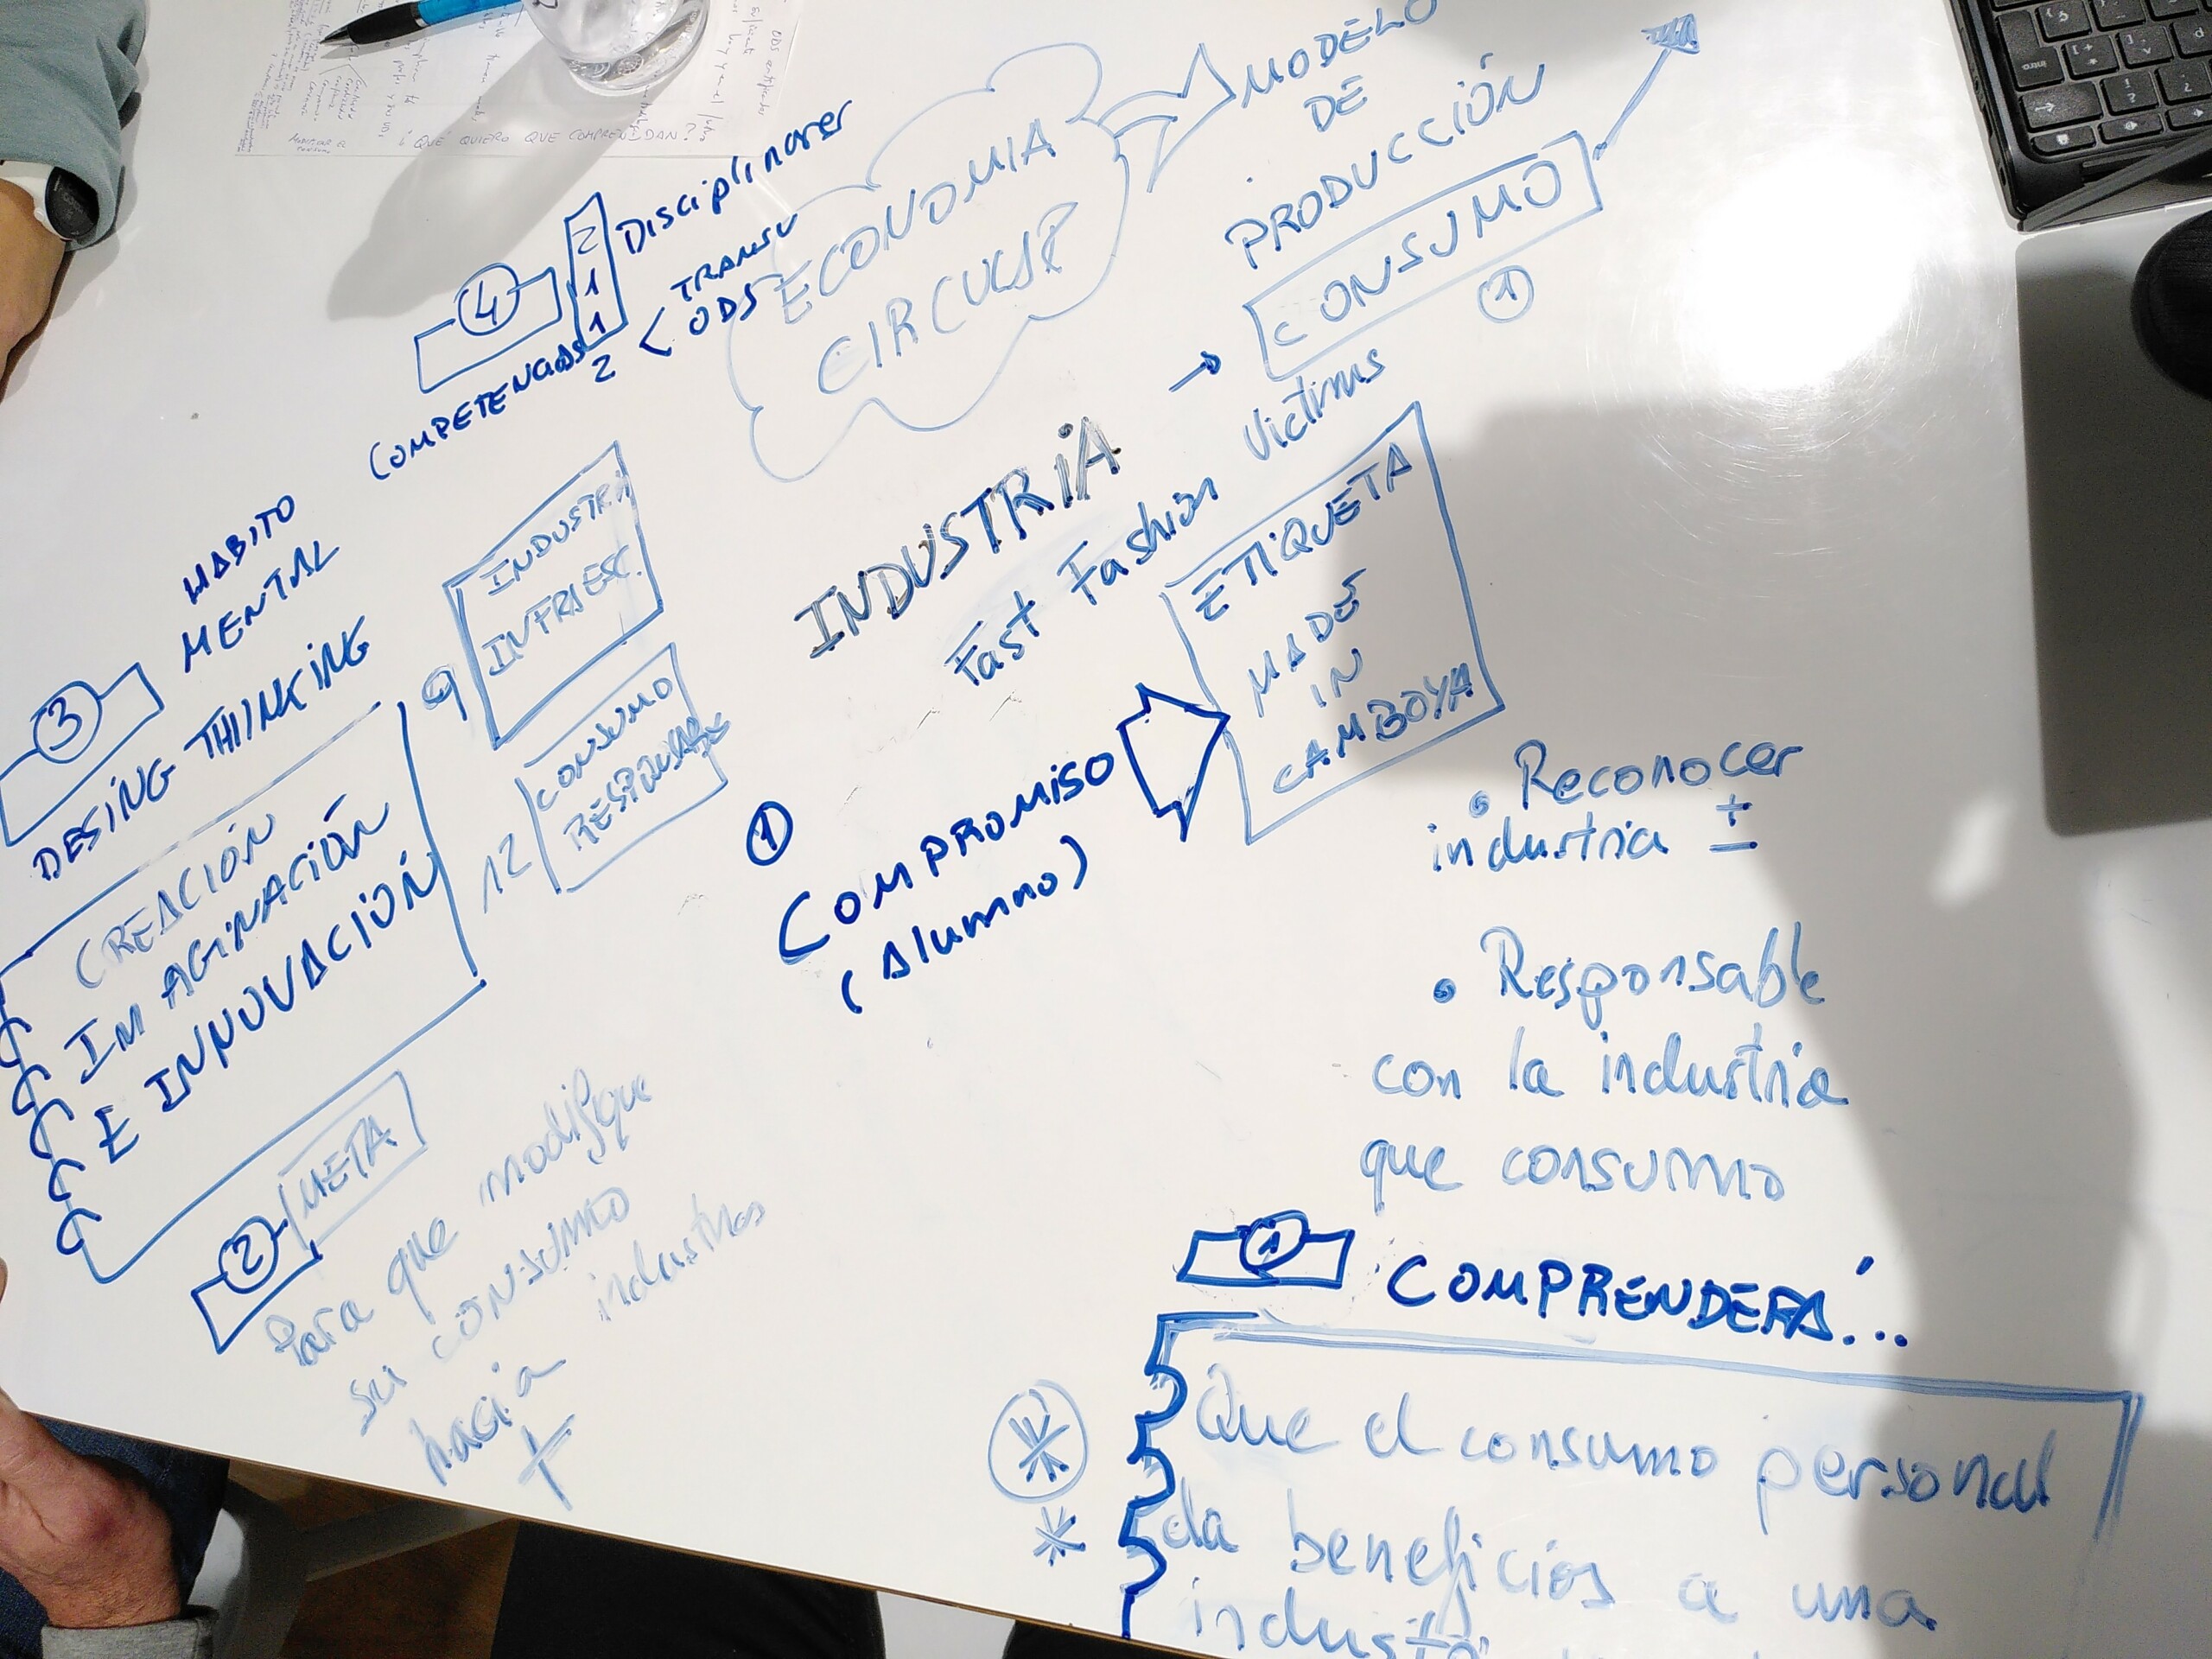 ¿QUÉ QUIERO QUE COMPRENDAN?
ECONOMIA
CIRCULAR
MODELO
DE
PRODUCCIÓN
CONSUMO
1
4
2 Disciplinarer
1 TRANSV
1
2 < ODS
COMPETENCIAS
INDUSTRIA
Fast Fashion Victims
ETIQUETA
MADE
IN
CAMBOYA
3
HABITO
MENTAL
DESING THINKING
CREACIÓN
IMAGINACIÓN
E INNOVACIÓN
9
INDUSTRIA
INFRAESC.
12
CONSUMO
RESPONSABLE
1
COMPROMISO
(Alumno)
2
META
Para que modifique
su consumo
hacia industrias
+
• Reconocer
industria ±
• Responsable
con la industria
que consumo
1
COMPRENDERÁ...
Que el consumo personal
da beneficios a una